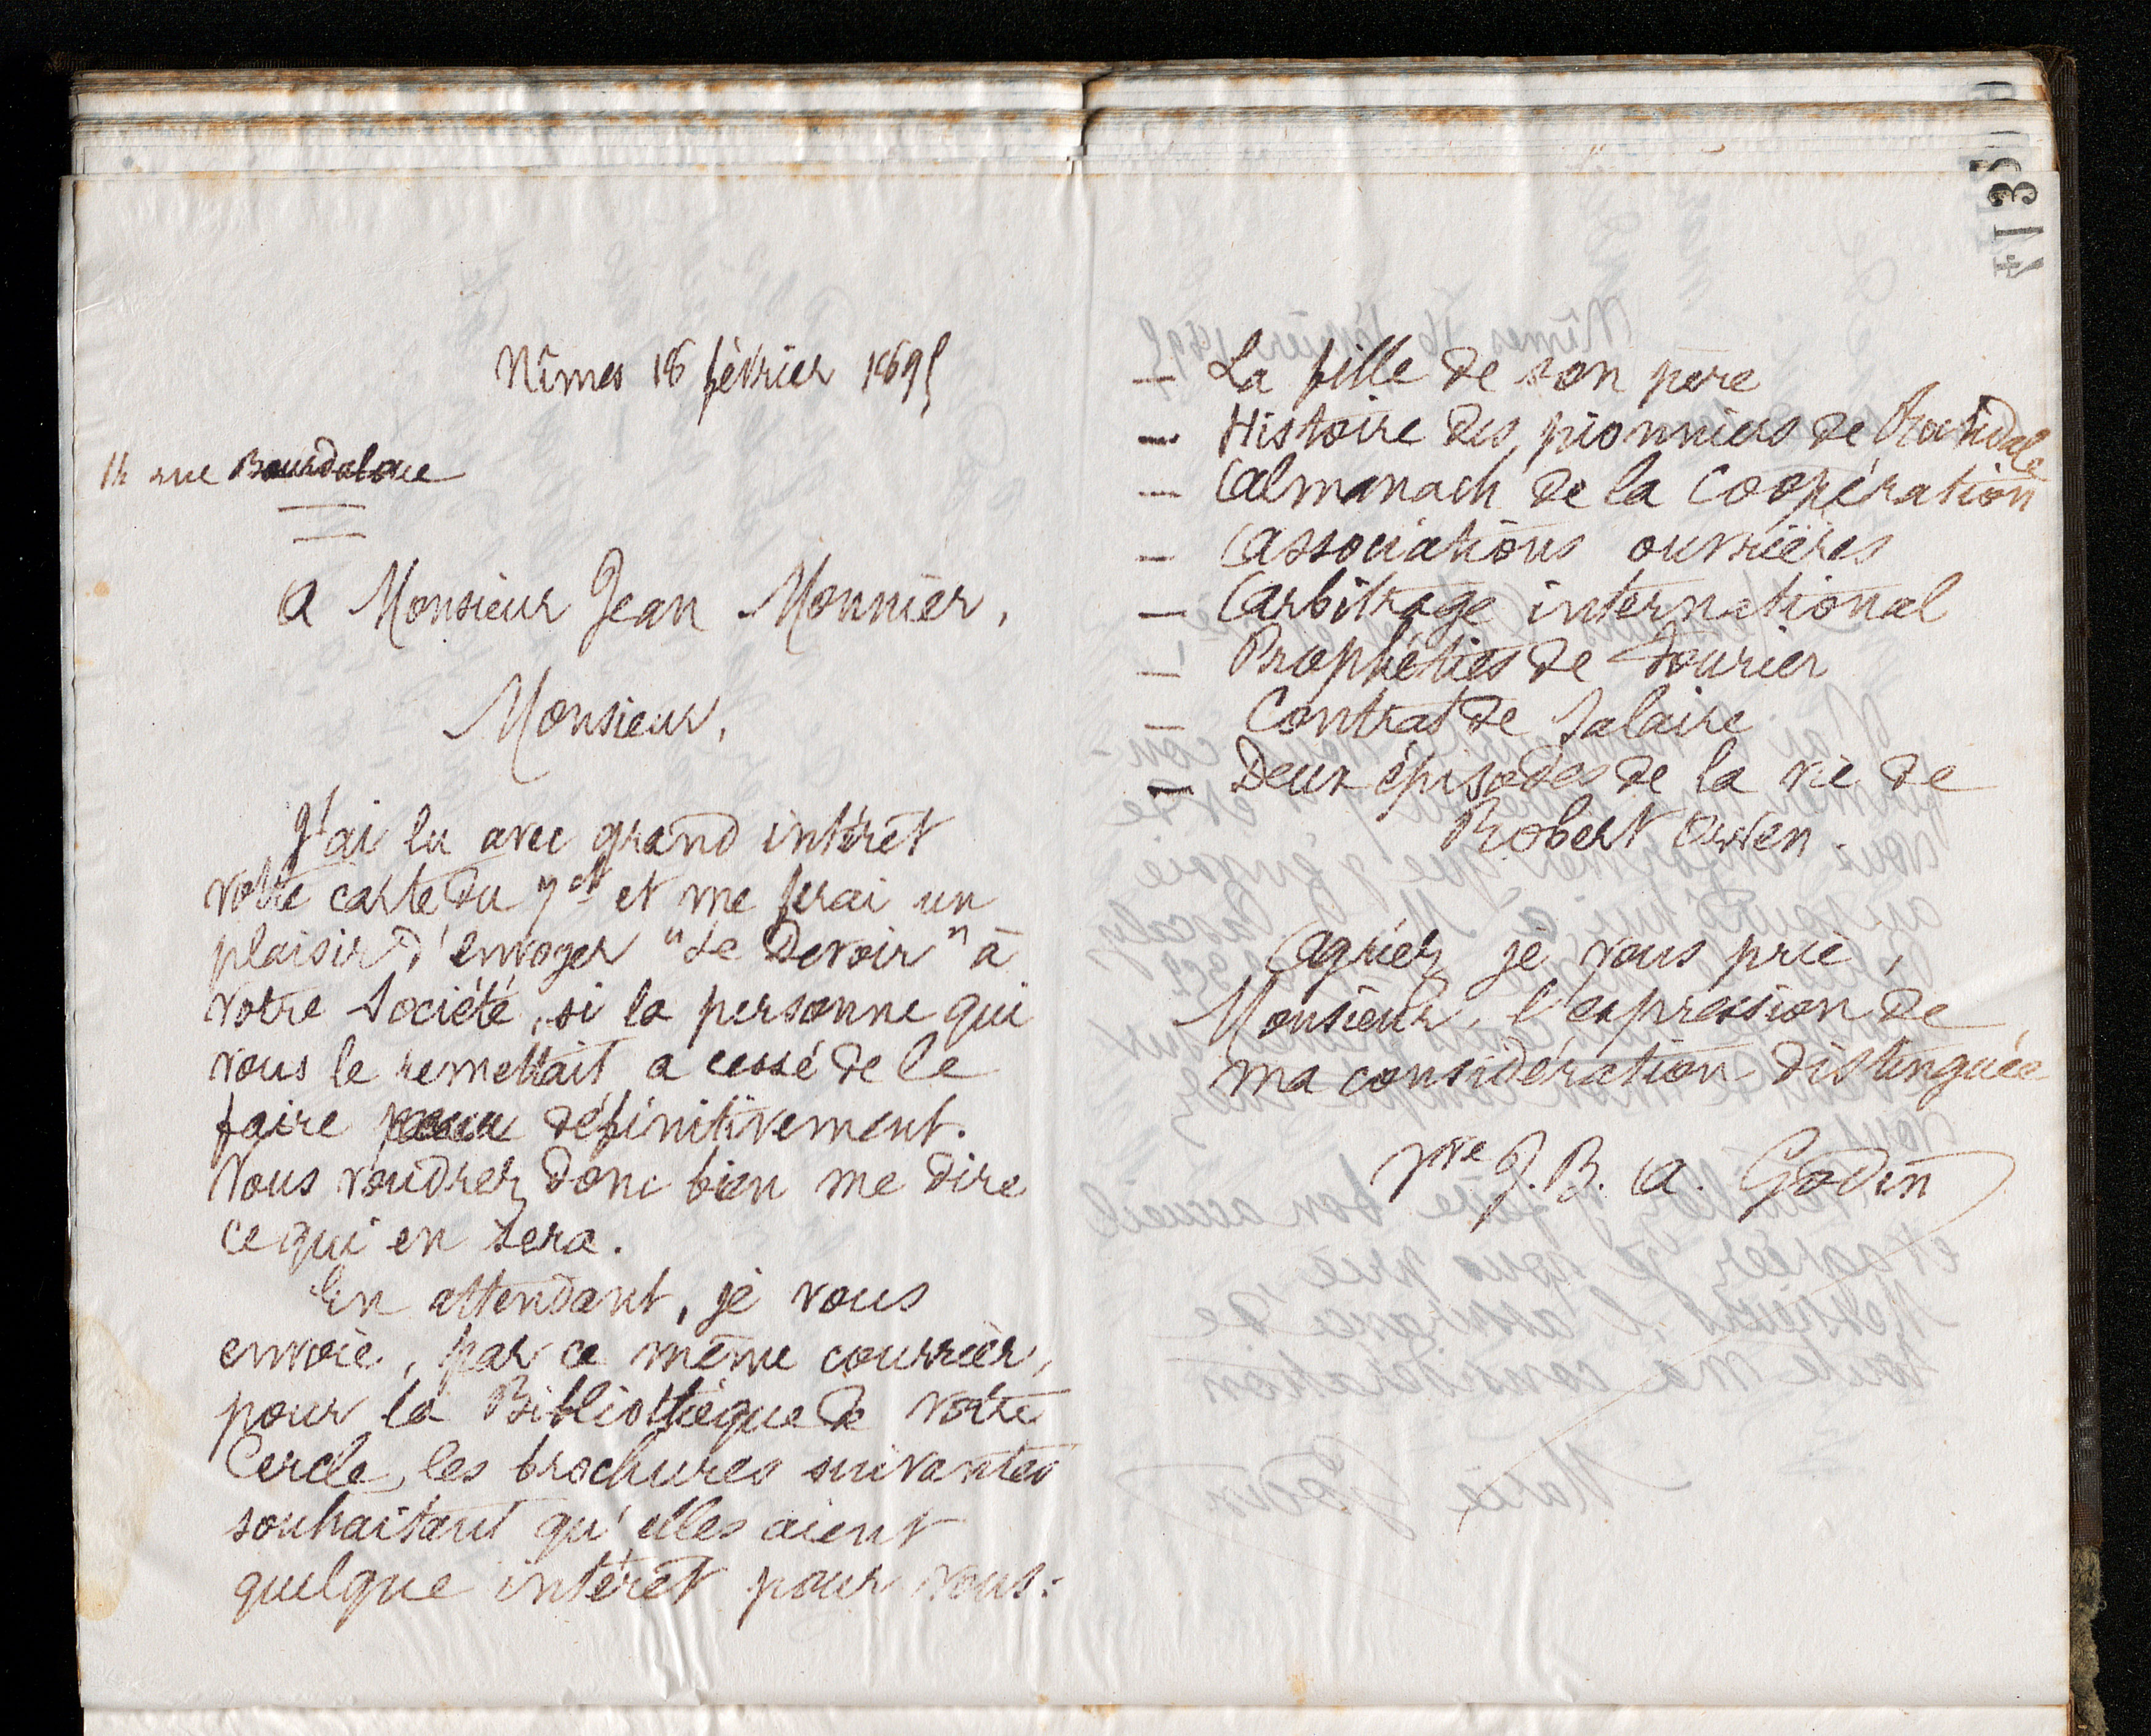 Nîmes 16 février 1895
14 rue Bourdaloue
A Monsieur Jean Monnier,
Monsieur,
J'ai lu avec grand intérêt
votre carte du 7 ct et me ferai un
plaisir d'envoyer "Le Devoir" à
votre Société, si la personne qui
vous le remettait a cessé de le
faire définitivement.
Vous voudrez donc bien me dire
ce qui en sera.
En attendant, je vous
envoie, par ce même courrier,
pour la Bibliothèque de votre
Cercle, les brochures suivantes
souhaitant qu'elles aient
quelque intérêt pour vous:
— La fille de son père
— Histoire des pionniers de Rochdale
— Almanach de la Coopération
— Associations ouvrières
— Arbitrage international
— Prophéties de Fourier
— Contrat de Salaire
— Deux épisodes de la vie de
Robert Owen.
Agréez, je vous prie,
Monsieur, l'expression de
ma considération distinguée
Vve J. B. A. Godin